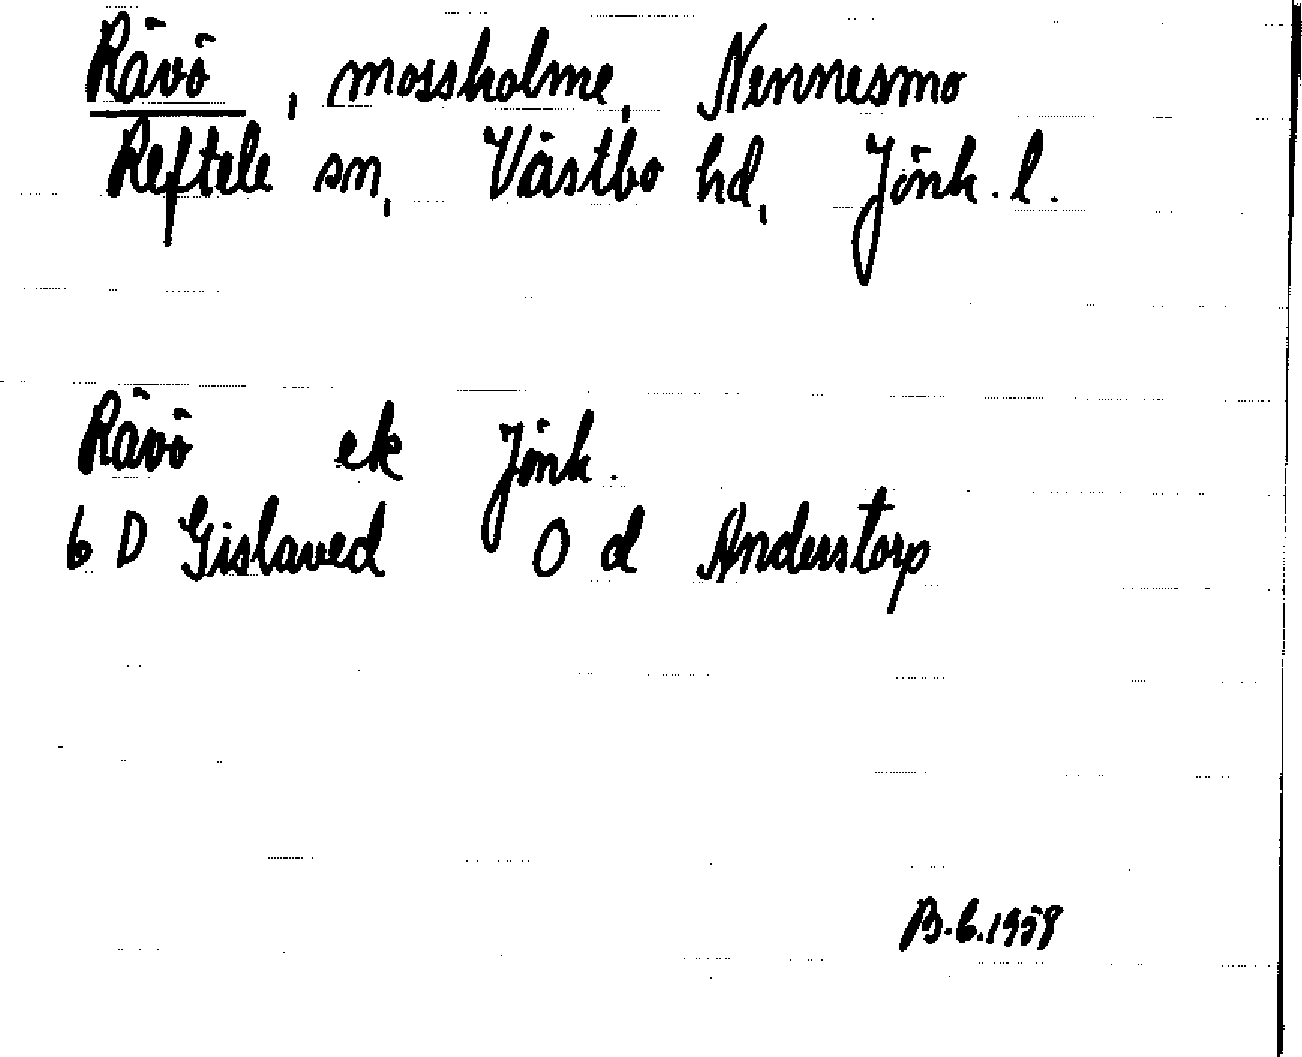 Rävö, mossholme, Nennesmo
Reftele sn, Västbo hd, Jönk. l.
Rävö ek Jönk.
6 D Gislaved 0 d Anderstorp
B.E. 1958